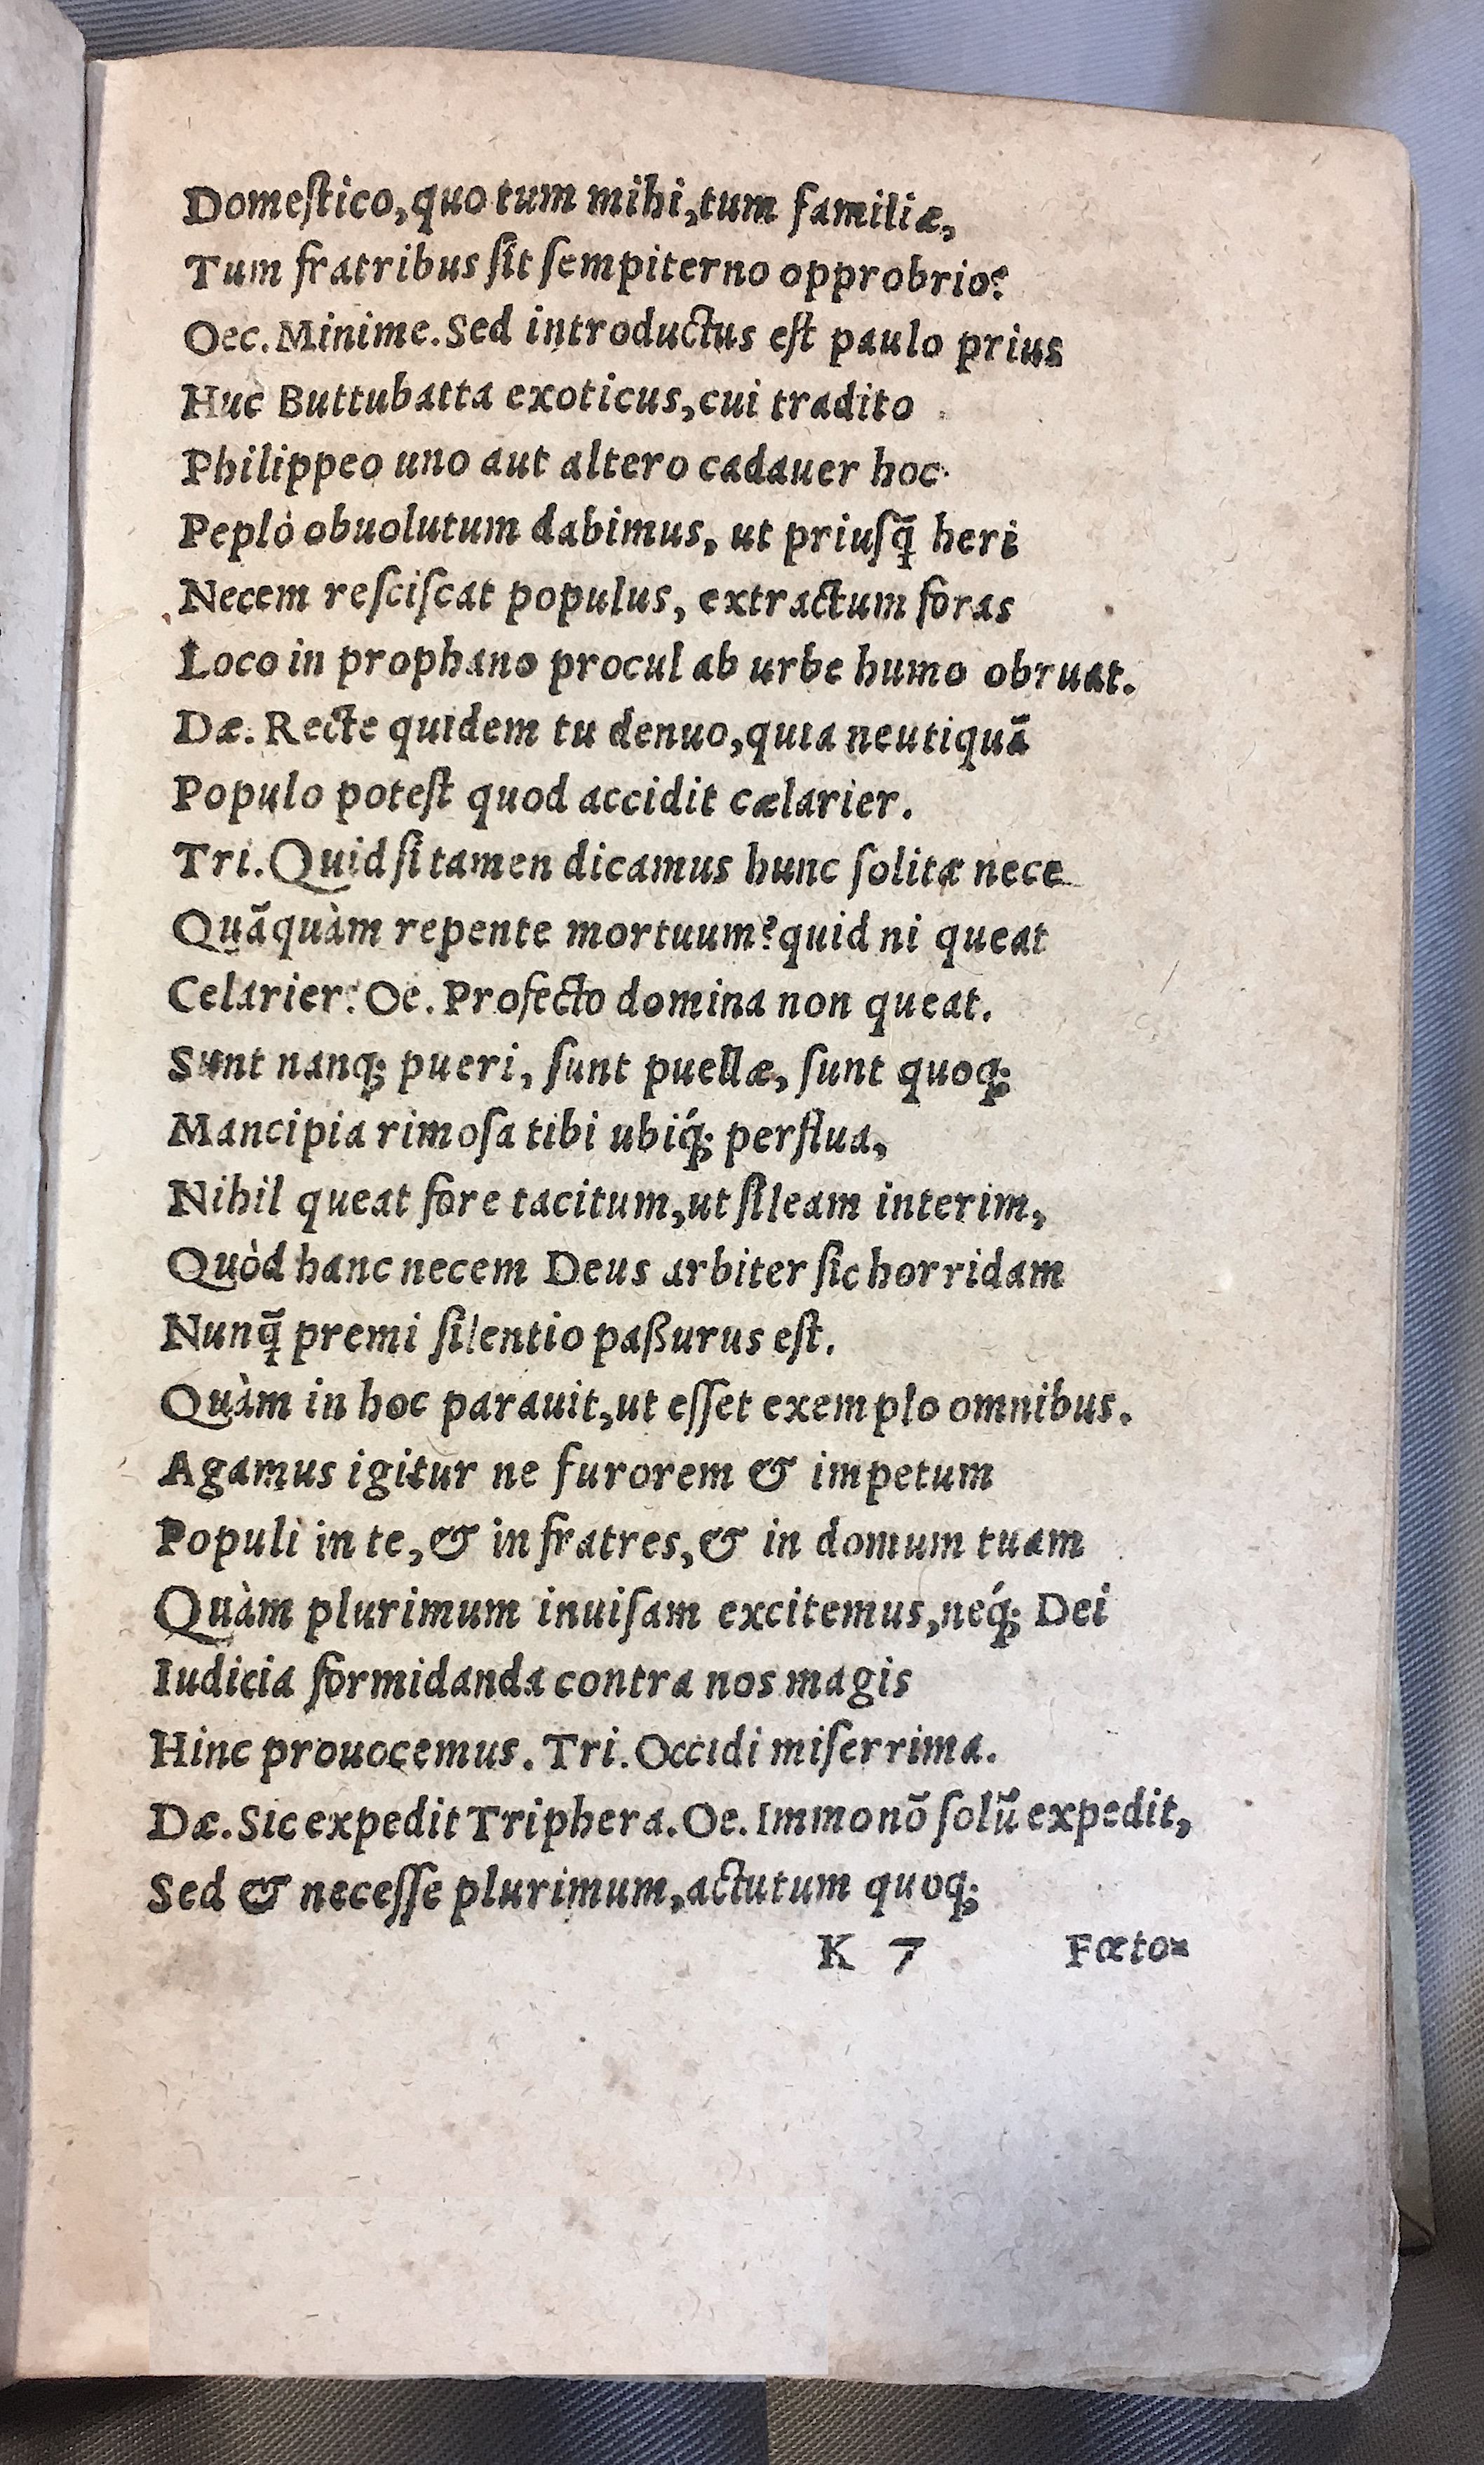 Domeſtico, quo tum mihi, tum familiæ,
Tum fratribus ſit ſempiterno opprobrio?
Oec. Minime. Sed introductus eſt paulo prius
Huc Buttubatta exoticus, cui tradito
Philippeo uno aut altero cadauer hoc
Peplo obuolutum dabimus, ut priuſq̃ heri
Necem reſciſcat populus, extractum foras
Loco in prophano procul ab urbe humo obruat.
Dæ. Recte quidem tu denuo, quia neutiquã
Populo poteſt quod accidit cælarier.
Tri. Quid ſi tamen dicamus hunc ſolita nece
Quãquàm repente mortuum? quid ni queat
Celarier? Oe. Profecto domina non queat.
Sunt nanq; pueri, ſunt puellæ, ſunt quoq;
Mancipia rimoſa tibi ubiq́; perflua,
Nihil queat fore tacitum, ut ſileam interim,
Quòd hanc necem Deus arbiter ſic horridam
Nunq̃ premi ſilentio paßurus eſt.
Quàm in hoc parauit, ut eſſet exemplo omnibus.
Agamus igitur ne furorem & impetum
Populi in te, & in fratres, & in domum tuam
Quàm plurimum inuiſam excitemus, neq́; Dei
Iudicia formidanda contra nos magis
Hinc prouocemus. Tri. Occidi miſerrima.
Dæ. Sic expedit Triphera. Oe. Immo nõ ſolũ expedit,
Sed & neceſſe plurimum, actutum quoq;
K 7 Fœto-